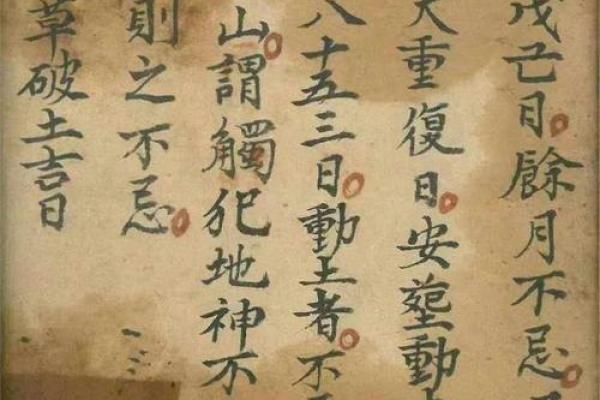 戊己日餘月不忌
大重復日安塟動
八十五三日動土者不
山謂觸犯地神不
則之不忌
草破土吉日